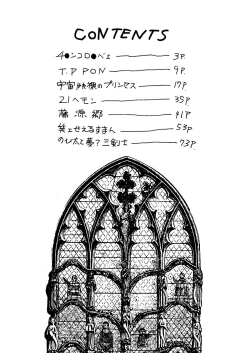 CONTENTS
4●ンコロ●ベェ 3P.
T.P PON 9P.
宇宙規模のプリンセス 17P.
21ヘモン 35P.
藤源郷 41P
笑ゥせぇるすまん 53P
のび太と夢了三剣士 73P.